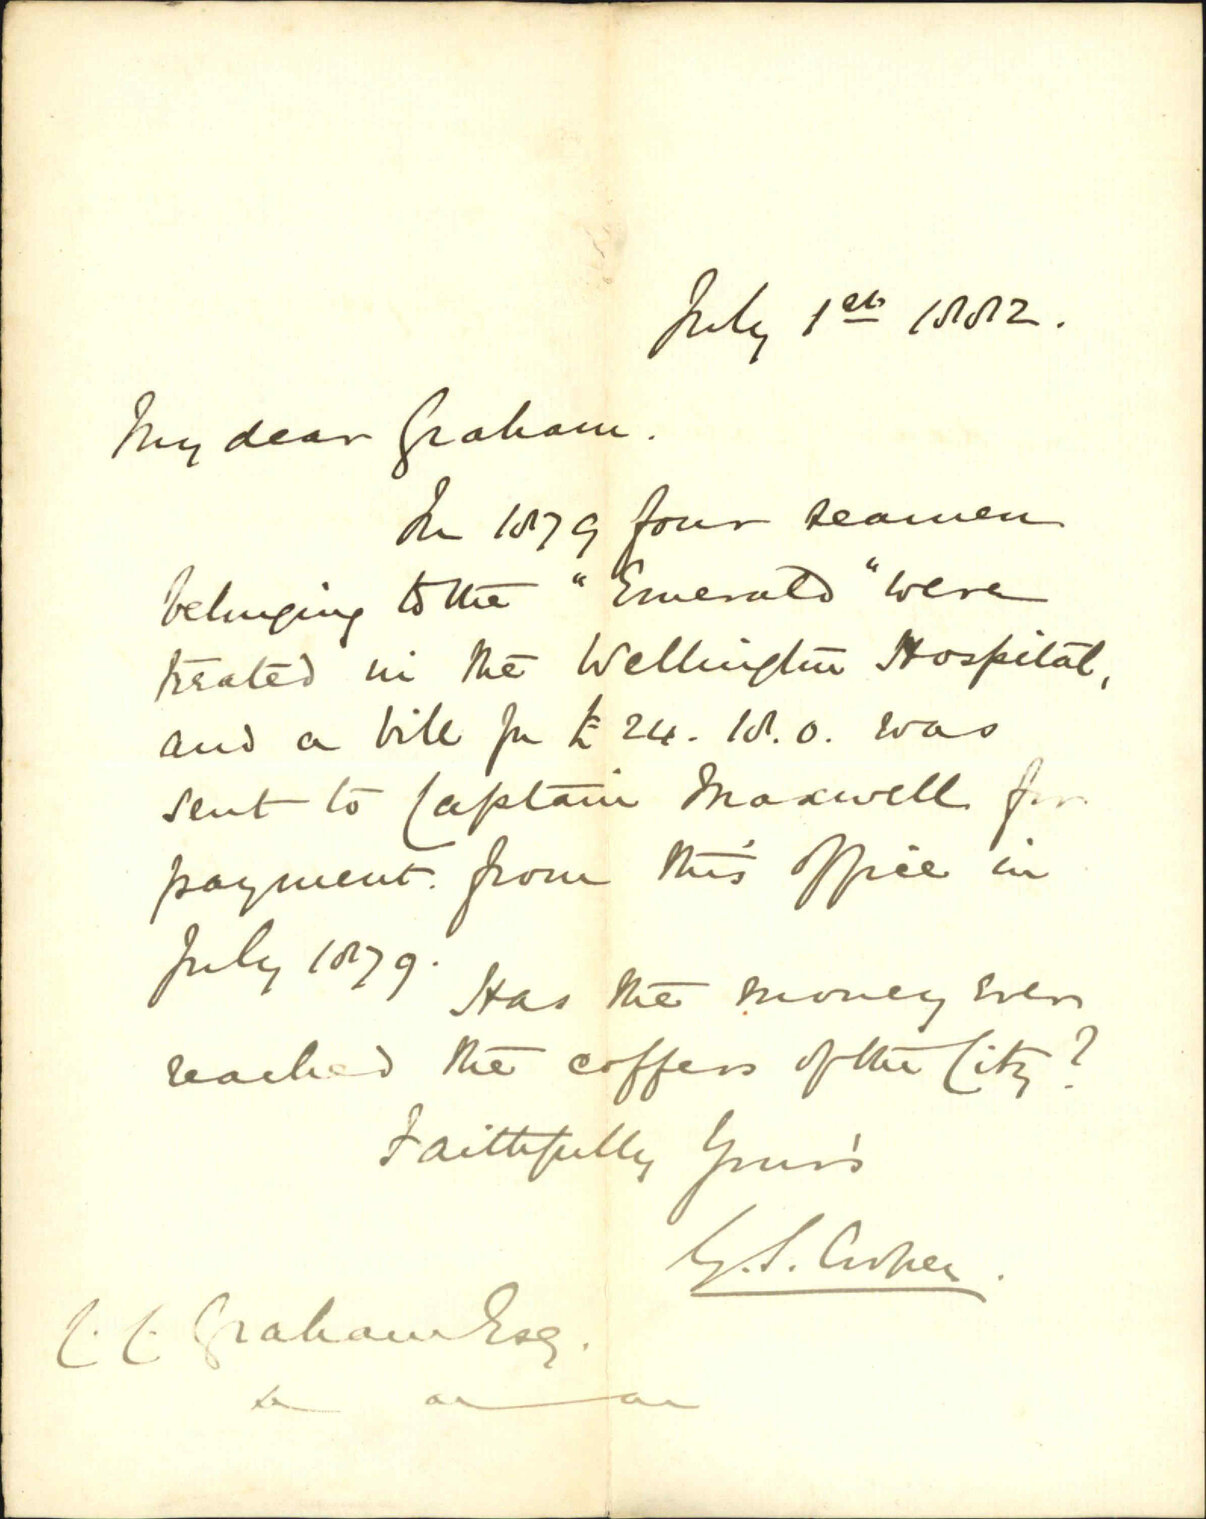 July 1st 1882.
My dear Graham.
In 1879 four seamen
belonging to the "Emerald" were
treated in the Wellington Hospital,
and a bill for £24. 18. 0. was
sent to Captain Maxwell for
payment from this office in
July 1879.
Has the money ever
reached the coffers of the City?
Faithfully Yours
G. S. Cooper.
C. C. Graham Esq.